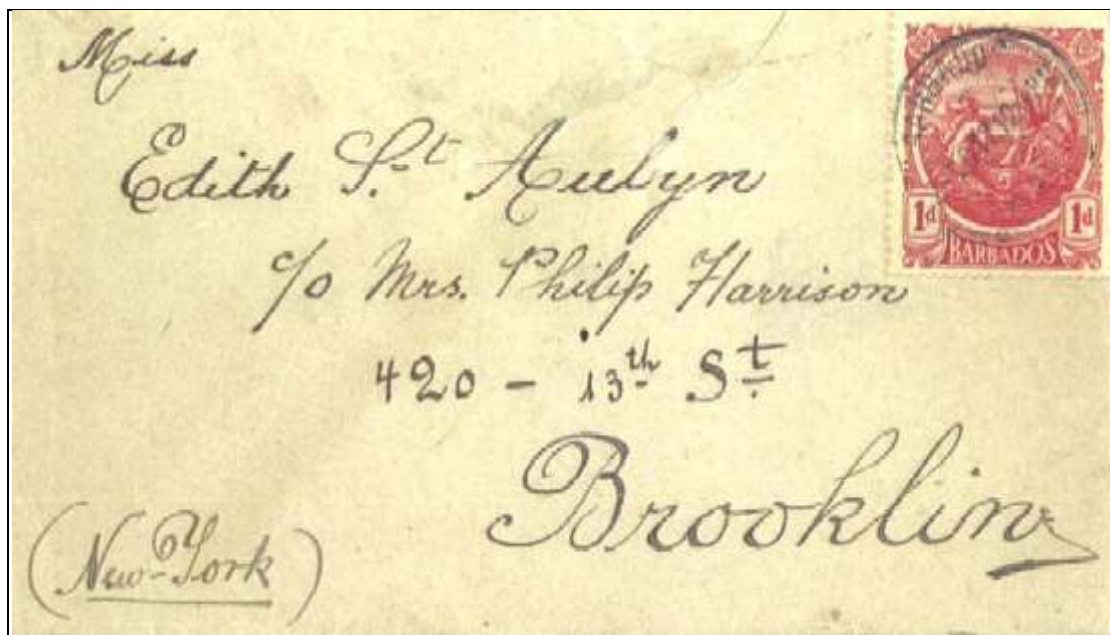 Miss
Edith St Aulyn
c/o Mrs. Philip Harrison
420 - 13th St
Brooklin
(New-York)
1d 1d
BARBADOS